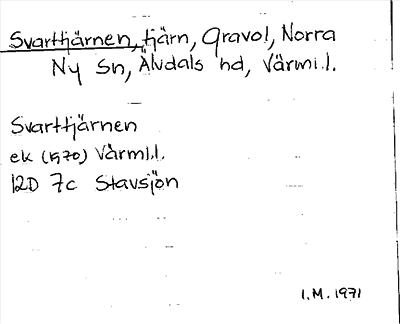 Svarttjärnen, tjärn, Gravol, Norra
Ny Sn, Älvdals hd, Värml.l.
Svarttjärnen
ek (1970) Värml.l.
12D 7c Stavsjön
I.M. 1971